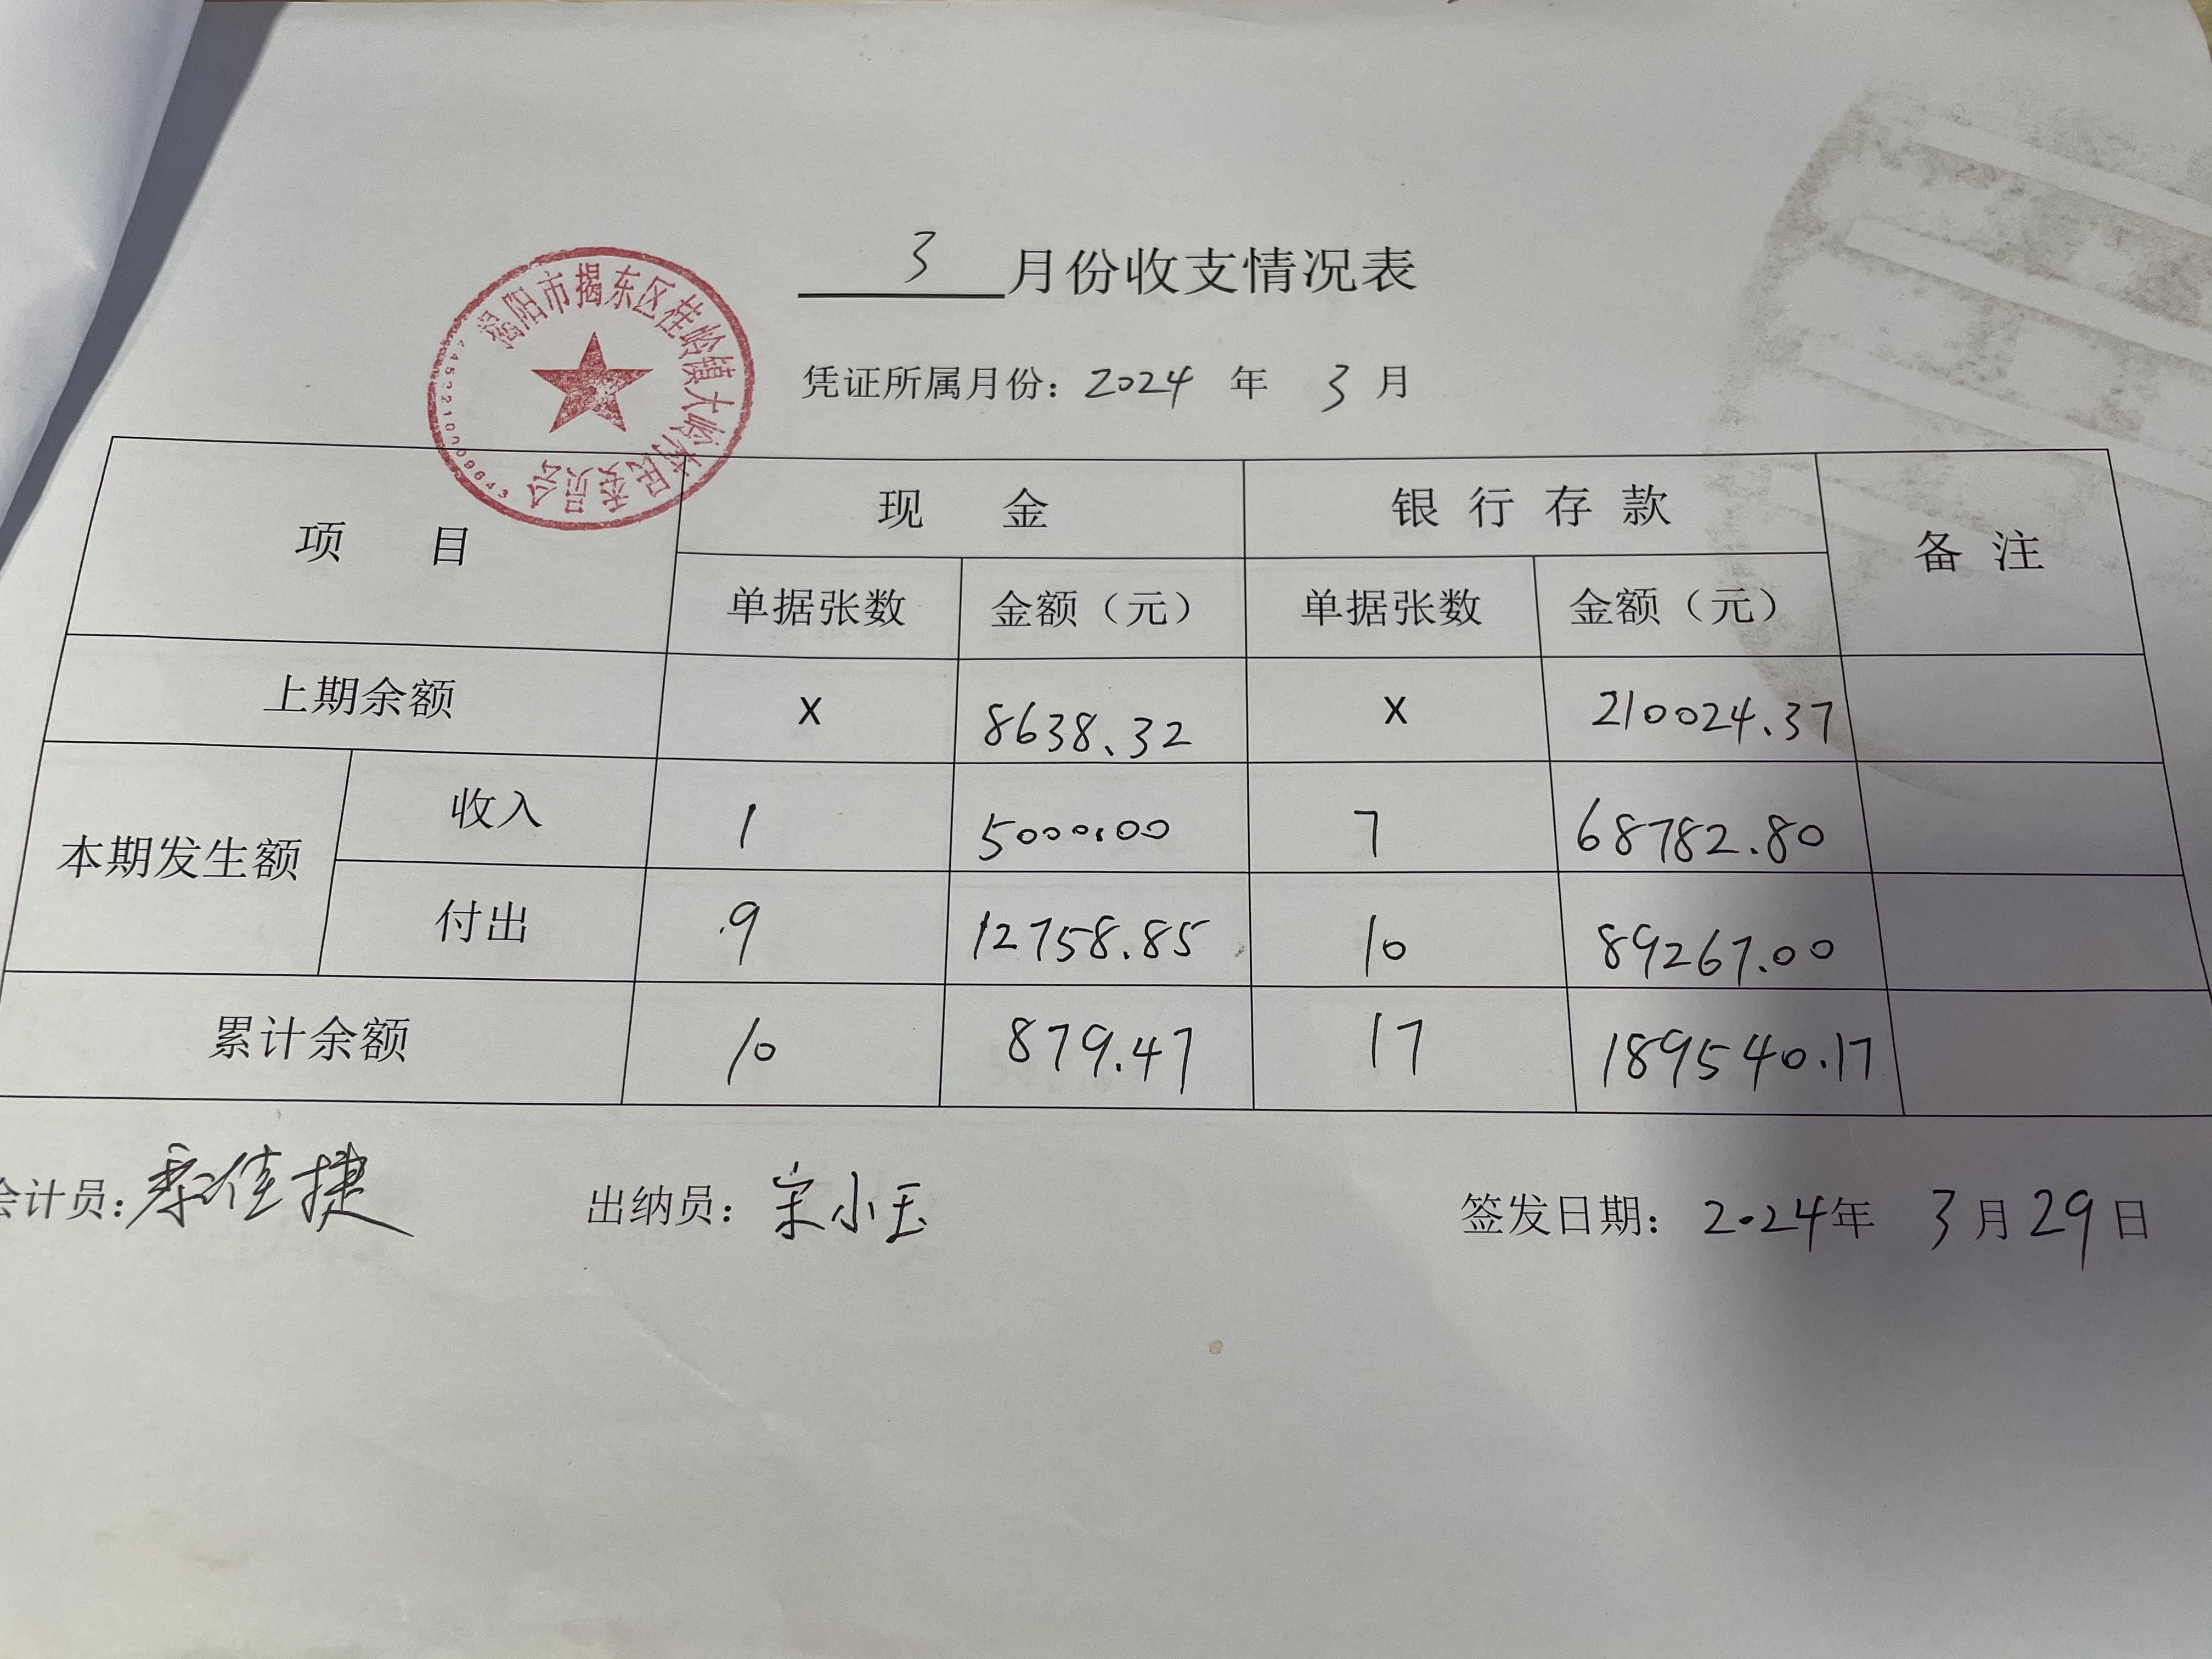 3月份收支情况表
揭阳市揭东区桂岭镇大岭村民委员会
4452210009643
凭证所属月份：2024年3月
项目 现金 银行存款 备注
单据张数 金额（元） 单据张数 金额（元）
上期余额 X 8638.32 X 210024.37
本期发生额 收入 1 5000.00 7 68782.80
付出 9 12758.85 10 89267.00
累计余额 10 879.47 17 189540.17
会计员：佳捷 出纳员：宋小玉 签发日期：2024年3月29日